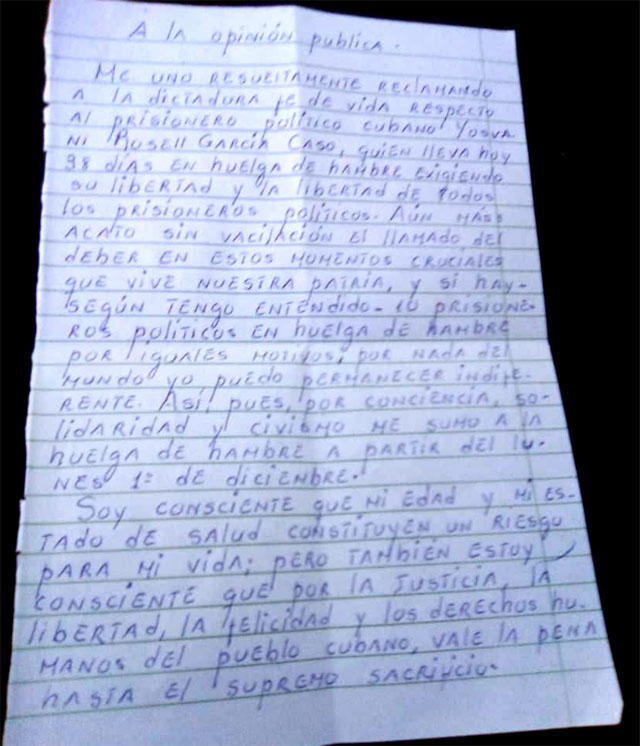 A la opinión publica.
Me uno resueltamente reclamando
a la dictadura fe de vida respecto
al prisionero político cubano Yosva
ni Rosell García Caso, quien lleva hoy
38 días en huelga de hambre exigiendo
su libertad y la libertad de todos
los prisioneros políticos. Aún más:
acato sin vacilación el llamado del
deber en estos momentos cruciales
que vive nuestra patria, y si hay-
según tengo entendido- 10 prisione-
ros políticos en huelga de hambre
por iguales motivos, por nada del
mundo yo puedo permanecer indife-
rente. Así, pues, por conciencia, so-
lidaridad y civismo me sumo a la
huelga de hambre a partir del lu-
nes 1º de diciembre.
Soy consciente que mi edad y mi es-
tado de salud constituyen un riesgo
para mi vida; pero también estoy
consciente que por la justicia, la
libertad, la felicidad y los derechos hu-
manos del pueblo cubano, vale la pena
hasta el supremo sacrificio.